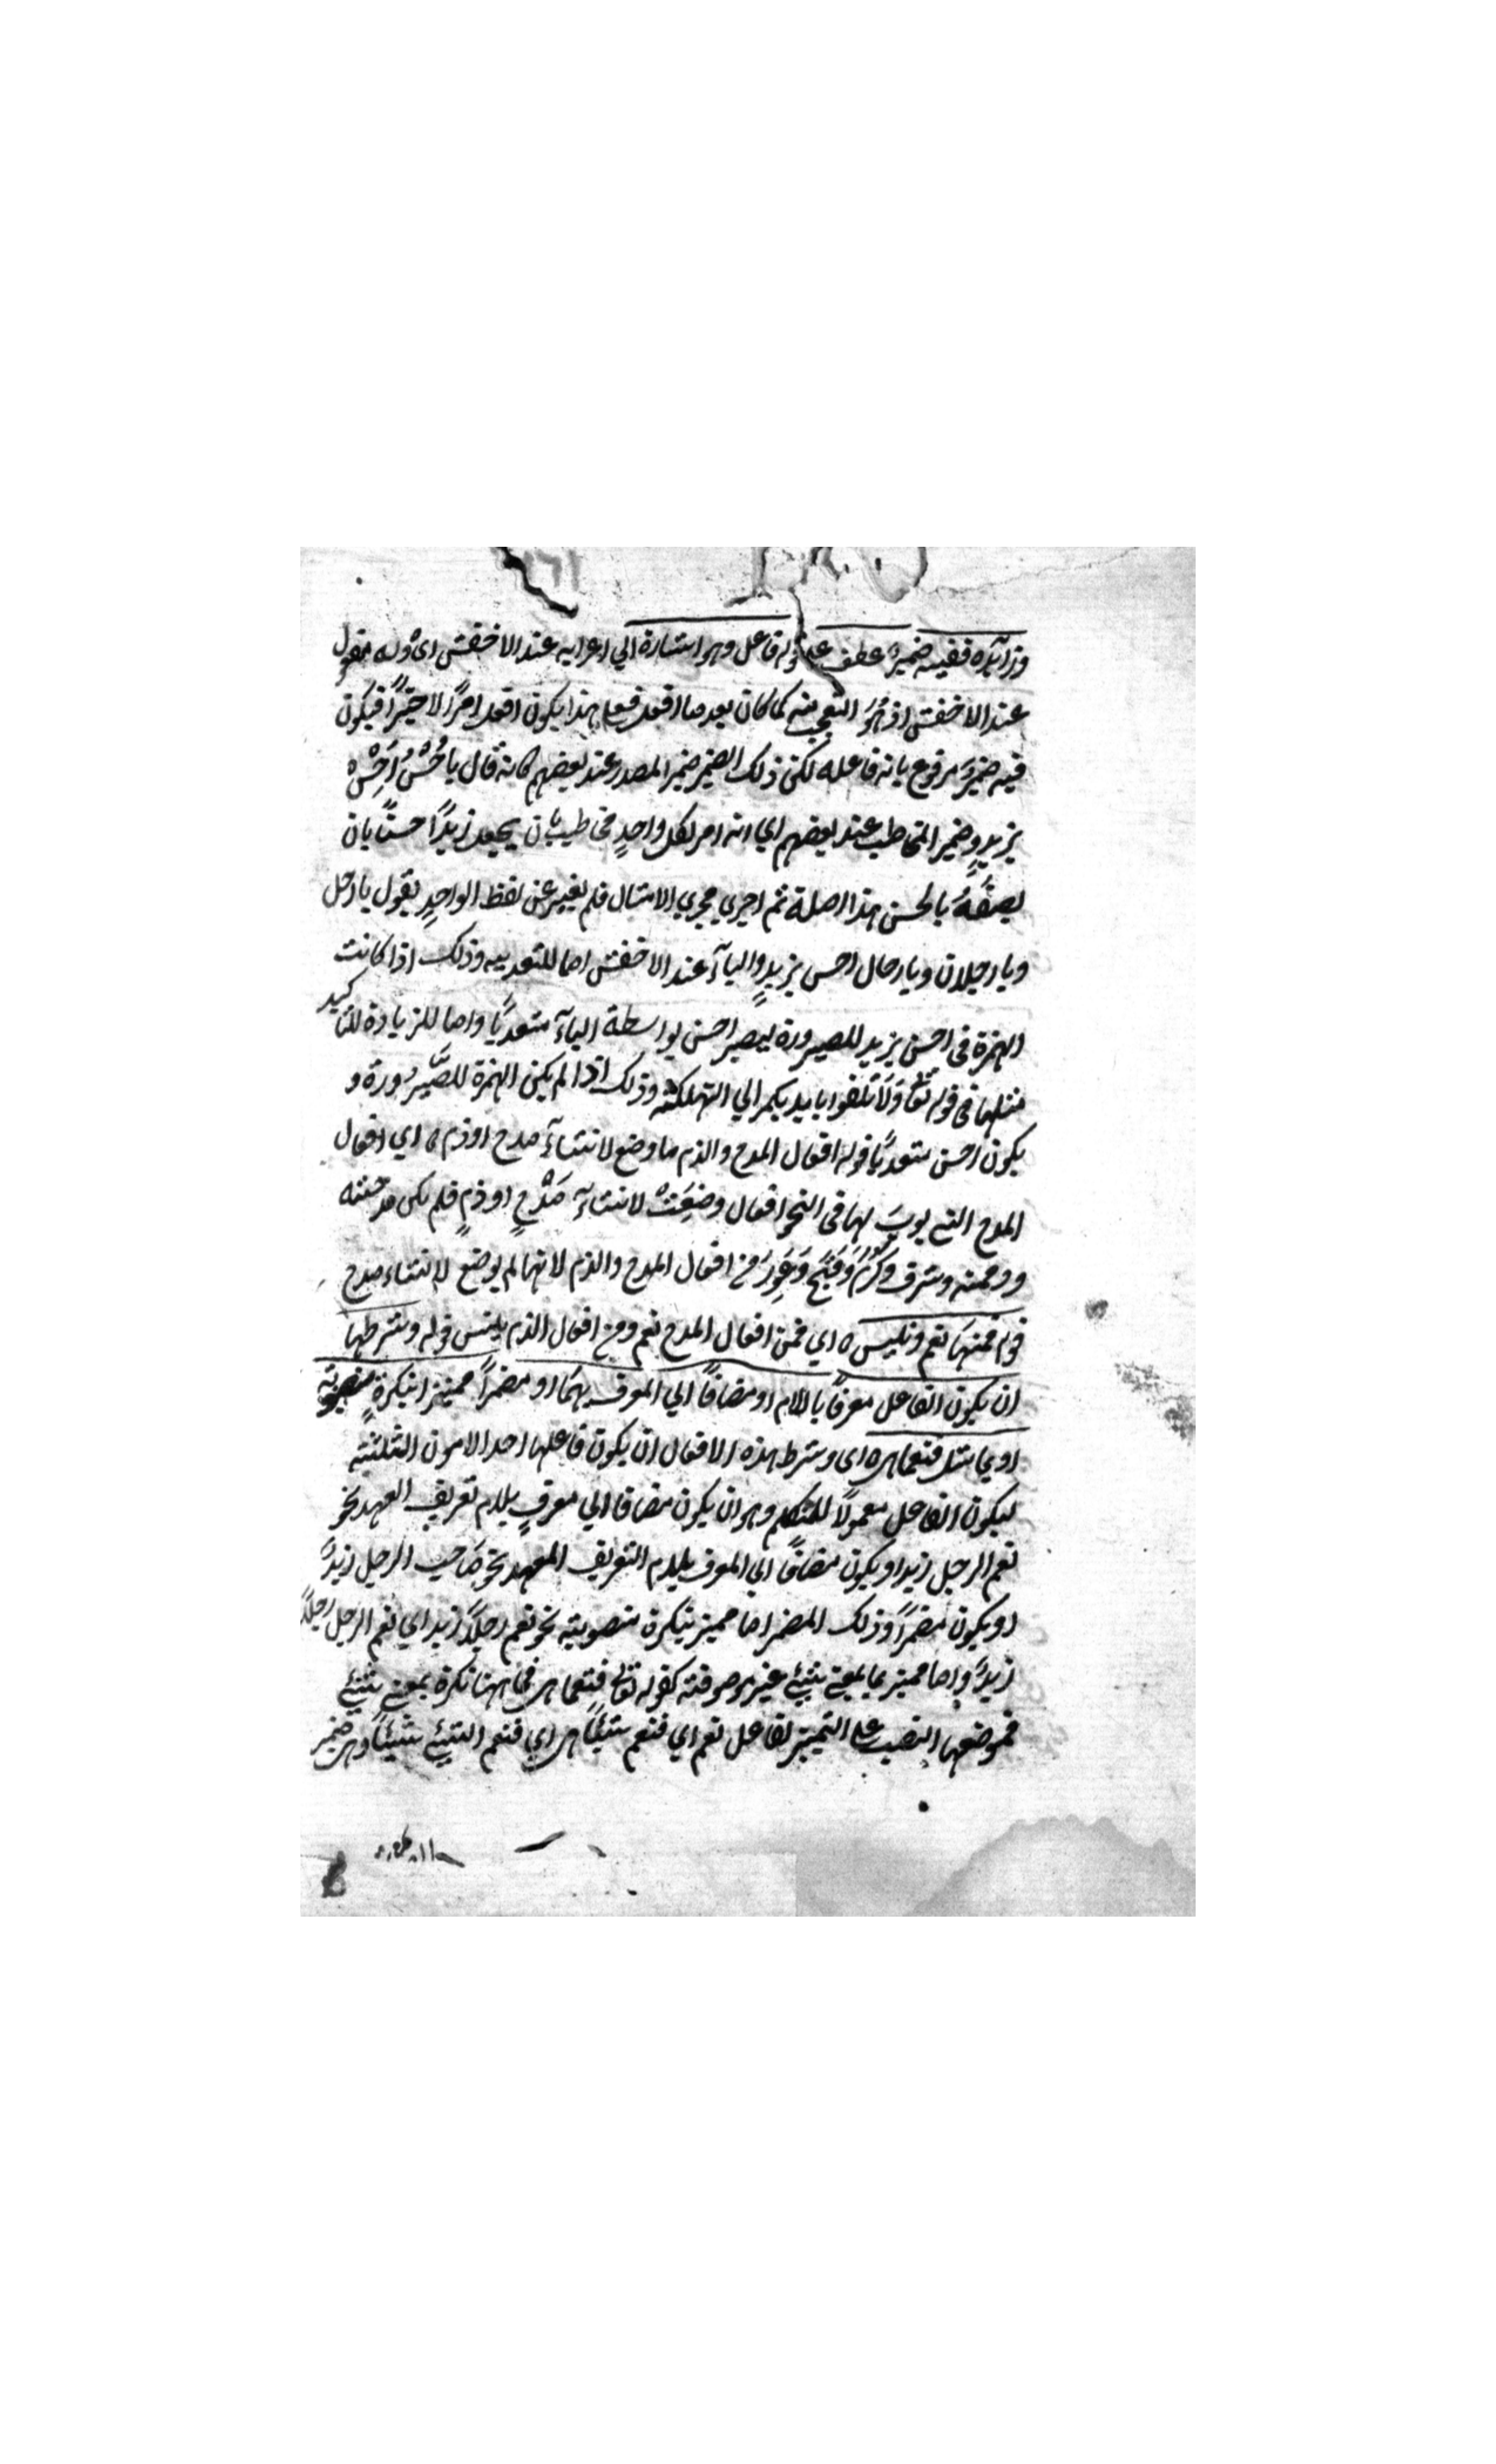 وزايدة ففيه ضمير عطف على قوله فاعل وهو اشارة الي اعرابه عند الاخفش اى وله مفعول
عند الاخفش اذ هو المتعجب منه كما كان بعد ما افعله فعلى هذا يكون افعل امرًا لا خبرًا فيكون
فيه ضمير مرفوع بانه فاعله لكن ذلك الضمير ضمير المصدر عند بعضهم كانه قال يا حُسْنُ اَحْسِنْ
بزيدٍ وضمير المخاطب عند بعضهم اي انه امر لكل واحدٍ مخاطب بان يجعل زيدًا حسنًا بان
يصفَهُ بالحسن هذا اصله ثم اجري مجري الامثال فلم يغير عن لفظ الواحدِ يقول يا رجل
ويا رجلان ويا رجال احسن بزيدٍ والبآء عند الاخفش اما للتعديه وذلك اذا كانت
الهمزة فى احسن بزيد للصيرورة ليصير احسن بواسطة البآء متعديًا واما للزيادة للتاكيد
مثلها فى قوله تع وَلَا تلقوا بايديكم الي التهلكته وذلك اذا لم يكن الهمزة للصَّيرُورة و
يكون احسن متعديًا قوله افعال المدح والذم ما وضع لانشآء مدح او ذم ه اي افعال
المدح التي بوبَ لها فى النحو افعال وضِعَتْ لانشآء مَدْحٍ او ذمٍ فلم يكن مدحته
وذممته وشرف وكَرُمَ وقَبُحَ وَعَوِرَ من افعال المدح والذم لانها لم يوضع لانشاء مدح
قوله فمنهَا نعم وبئس ه اي فمن افعال المدح نعم ومن افعال الذم بئس قوله وشرطها
ان يكون الفاعل معرفًا باللام او مضافًا الي المعرف بهَا او مضمرًا مميزا بنكرةٍ منصوبة
او بما مثل فنعما هى ه اى وشرط هذه الافعال ان يكون فاعلها احد الامور الثلثة
ليكون الفاعل معمولًا للمتكلم وهو ان يكون مضافا الي معرفٍ بلام تعريف العهد نحو
نعم الرجل زيد او يكون مضافًا الي المعرف بلام التعريف المعهد نحو صَاحب الرجل زيدٌ
او يكون مضمرًا وذلك المضمر اما مميز بنكرة منصوبة نحو نعم رجلًا زيد اي نعم الرجل رجلًا
زيدٌ واما مميز بما بمعنى شيئ غير موصوفة كقوله تع فنعما هى فما هنا نكرة بمعني شيئ
فموضعها النصب على التمييز لفاعل نعم اي فنعم شيئًا هى اي فنعم الشيئ شيئًا وهى ضمير